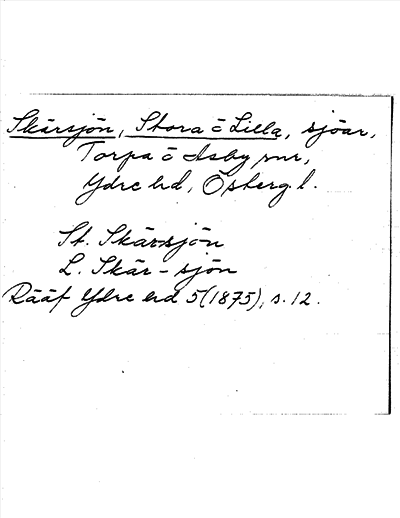 Skärsjön, Stora o Lilla, sjöar,
Torpa o Asby snr,
Ydre hd, Östergl.
St. Skärsjön
L. Skär-sjön
Rääf Ydre hd 5(1875), s. 12.